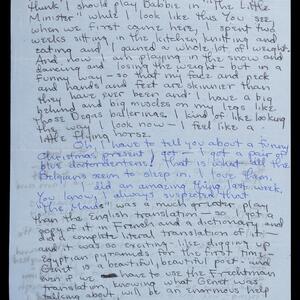 think I should play Babbie in "The Little
Minister" while I look like this. You see,
when we first came here, I spent two
weeks sitting in the kitchen knitting and
eating and I gained a whole lot of weight.
And now I am playing in the snow and
dancing and losing the weight - but in a
funny way - so that my face and neck
and hands and feet are skinnier than
they have ever been and I have a big
behind and big muscles on my legs like
those Degas ballerinas. I kind of like looking
the way I look now - I feel like a
little flying horse.
Oh, I have to tell you about a funny
Christmas present I got - I got a pair of
blue . That is what all the
Belgians seem to sleep in. I love them.
I did an amazing thing last week.
You know, I always suspected that
"The Maids" was a much greater play
than the English translation - so I got a
copy of it in French and a dictionary and
did a complete literal translation of it -
and it was so exciting - like digging up
Egyptian pyramids for the first time.
Genet is a beautiful, beautiful poet - and
even if we have to use the Frechtman
translation, knowing what Genet was
talking about will be an enormous help